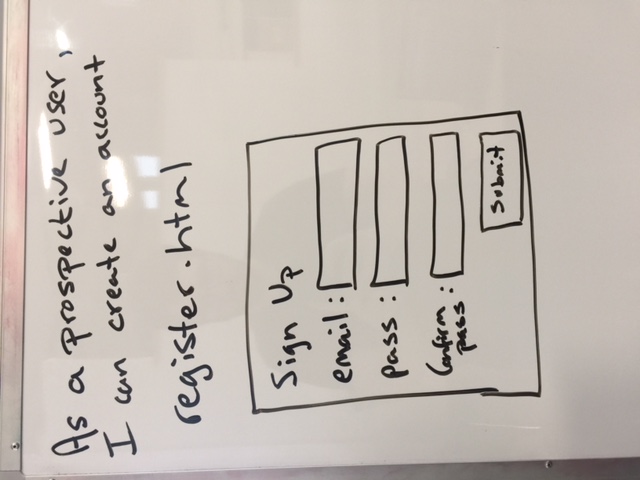 As a prospective user,
I can create an account
register.html
Sign Up
email:
pass:
Confirm
pass:
Submit